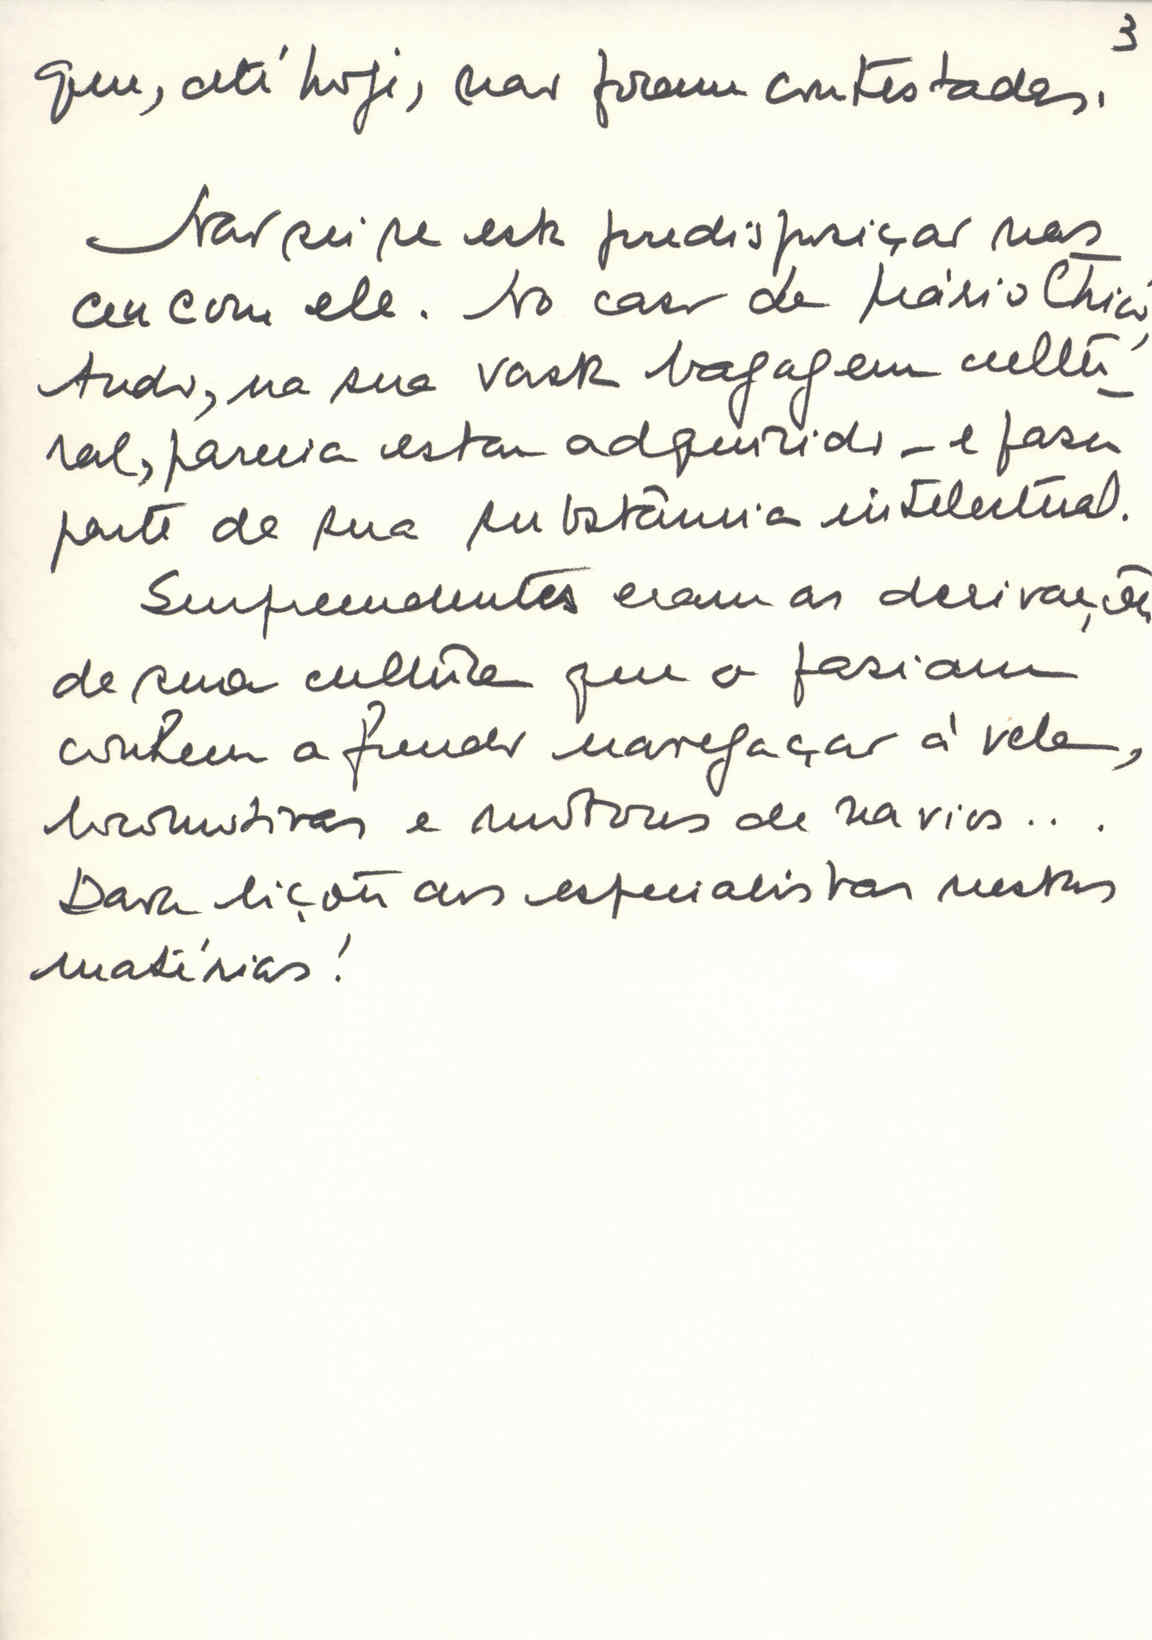 3
que, até hoje, não foram contestadas.
Não sei se esta predisposição nas-
ceu com ele. No caso de Mário Chicó,
tudo, na sua vasta bagagem cultu-
ral, parecia estar adquirido – e fazer
parte de sua substância intelectual.
Surpreendentes eram as derivações
de sua cultura que o faziam
conhecer a fundo navegação à vela,
locomotivas e motores de navios...
Dava lições aos especialistas nestas
matérias!